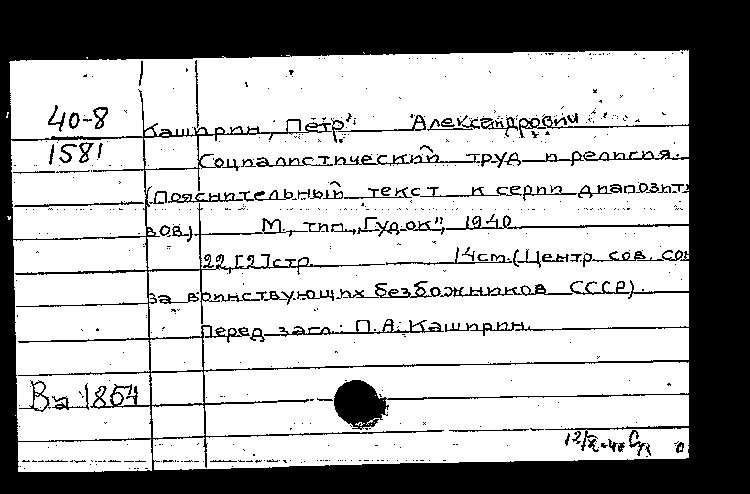 40-8
1581
Каширин, Петр Александрович
Социалистический труд и религия.
(Пояснительный текст к серии диапозити
вов). М., тип. „Гудок", 1940
22,[2]стр. 14см.(Центр. сов. сою
за воинствующих безбожников СССР).
Перед загл.: П.А. Каширин.
Ва 1854